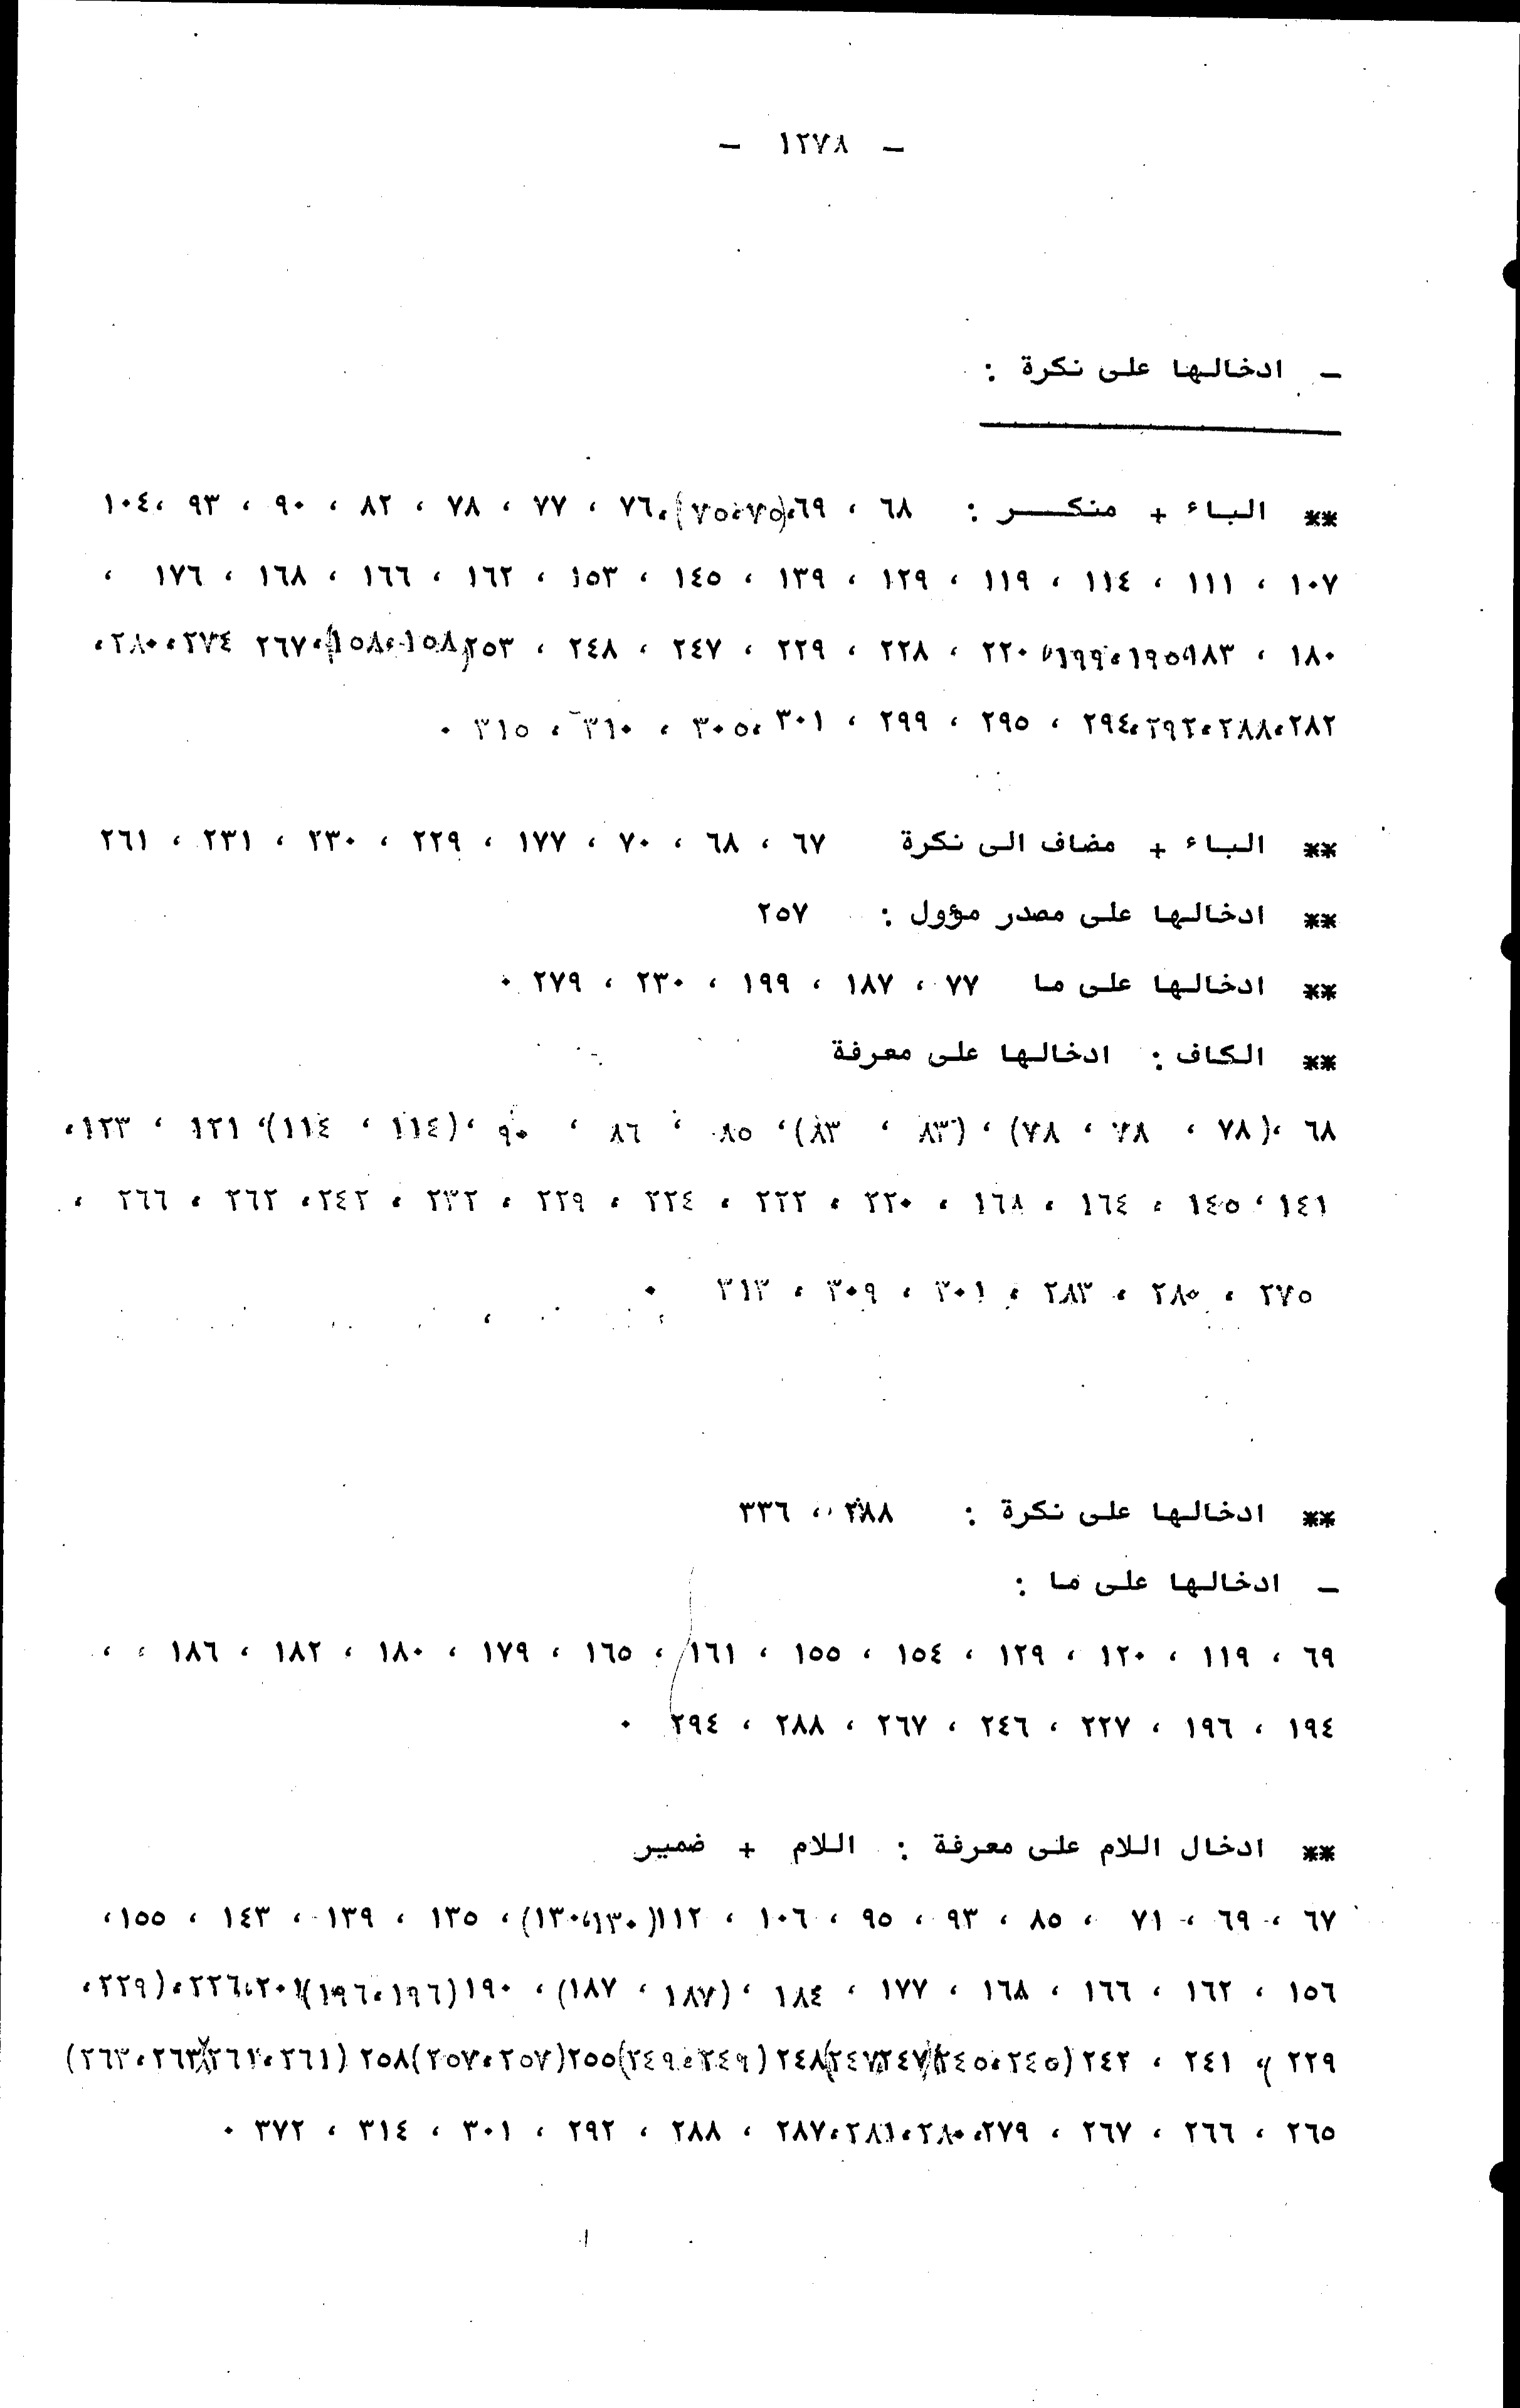 - ١٢٧٨ -
- ادخالها على نكرة :
** الباء + منكـــر : ٦٨ ، ٦٩،(٧٥،٧٥)،٧٦ ، ٧٧ ، ٧٨ ، ٨٢ ، ٩٠ ، ٩٣ ،١٠٤
١٠٧ ، ١١١ ، ١١٤ ، ١١٩ ، ١٢٩ ، ١٣٩ ، ١٤٥ ، ١٥٣ ، ١٦٢ ، ١٦٦ ، ١٦٨ ، ١٧٦ ،
١٨٠ ، ١٨٣،١٩٥،١٩٩، ٢٢٠ ، ٢٢٨ ، ٢٢٩ ، ٢٤٧ ، ٢٤٨ ، ٢٥٣(١٥٨،١٥٨)،٢٦٧ ٢٧٤،٢٨٠،
٢٨٢،٢٨٨،٢٩٢،٢٩٤ ، ٢٩٥ ، ٢٩٩ ، ٣٠١،٣٠٥ ، ٣١٠ ، ٣١٥ ٠
** الباء + مضاف الى نكرة ٦٧ ، ٦٨ ، ٧٠ ، ١٧٧ ، ٢٢٩ ، ٢٣٠ ، ٢٣١ ، ٢٦١
** ادخالها على مصدر مؤول : ٢٥٧
** ادخالها على ما ٧٧ ، ١٨٧ ، ١٩٩ ، ٢٣٠ ، ٢٧٩ ٠
** الكاف : ادخالها على معرفة
٦٨ ،(٧٨ ، ٧٨ ، ٧٨) ، (٨٣ ، ٨٣)، ٨٥ ، ٨٦ ، ٩٠ ،(١١٤ ، ١١٤)، ١٢١ ، ١٢٣،
١٤١ ، ١٤٥ ، ١٦٤ ، ١٦٨ ، ٢٢٠ ، ٢٢٢ ، ٢٢٤ ، ٢٢٩ ، ٢٣٢ ، ٢٤٢، ٢٦٢ ، ٢٦٦ ،
٢٧٥ ، ٢٨٠ ، ٢٨٣ ، ٣٠١ ، ٣٠٩ ، ٣١٣ ٠
** ادخالها على نكرة : ٢٨٨ ، ٣٣٦
- ادخالها على ما :
٦٩ ، ١١٩ ، ١٢٠ ، ١٢٩ ، ١٥٤ ، ١٥٥ ، ١٦١ ، ١٦٥ ، ١٧٩ ، ١٨٠ ، ١٨٢ ، ١٨٦ ، ،
١٩٤ ، ١٩٦ ، ٢٢٧ ، ٢٤٦ ، ٢٦٧ ، ٢٨٨ ، ٢٩٤ ٠
** ادخال اللام على معرفة : اللام + ضمير
٦٧ ، ٦٩ ، ٧١ ، ٨٥ ، ٩٣ ، ٩٥ ، ١٠٦ ، ١١٢(١٣٠،١٣٠)، ١٣٥ ، ١٣٩ ، ١٤٣ ، ١٥٥،
١٥٦ ، ١٦٢ ، ١٦٦ ، ١٦٨ ، ١٧٧ ، ١٨٤ ، (١٨٧ ، ١٨٧) ، ١٩٠ (١٩٦،١٩٦)٢٠١،٢٢٦،(٢٢٩،
٢٢٩ )، ٢٤١ ، ٢٤٢ (٢٤٥،٢٤٥)(٢٤٧،٢٤٧)٢٤٨ (٢٤٩،٢٤٩)٢٥٥(٢٥٧،٢٥٧)٢٥٨ (٢٦١،٢٦١)(٢٦٣،٢٦٣)
٢٦٥ ، ٢٦٦ ، ٢٦٧ ، ٢٧٩،٢٨٠،٢٨١،٢٨٧ ، ٢٨٨ ، ٢٩٢ ، ٣٠١ ، ٣١٤ ، ٣٧٢ ٠